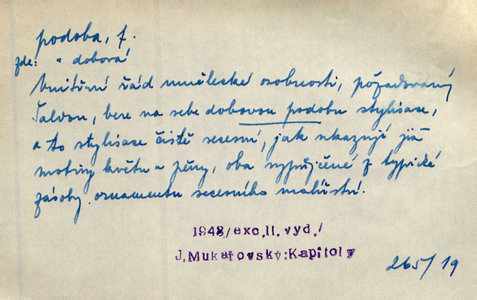 podoba, f.
zde: " dobová
Vnitřní řád umělecké osobnosti, požadovaný
Šaldou, bere na sebe dobovou podobu stylisace,
a to stylisace čistě secesní, jak ukazují již
motivy květu a pěny, oba vypůjčené z typické
zásoby ornamentu secesního malířství.
1948/exc.II.vyd./
J.Mukařovský:Kapitoly
265/19